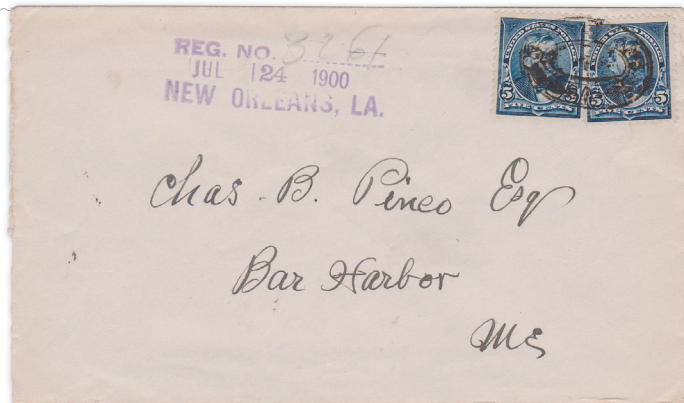 REG. NO. 3261
JUL 24 1900
NEW ORLEANS, LA.
5 5
Chas. B. Pineo Esq
Bar Harbor
Me